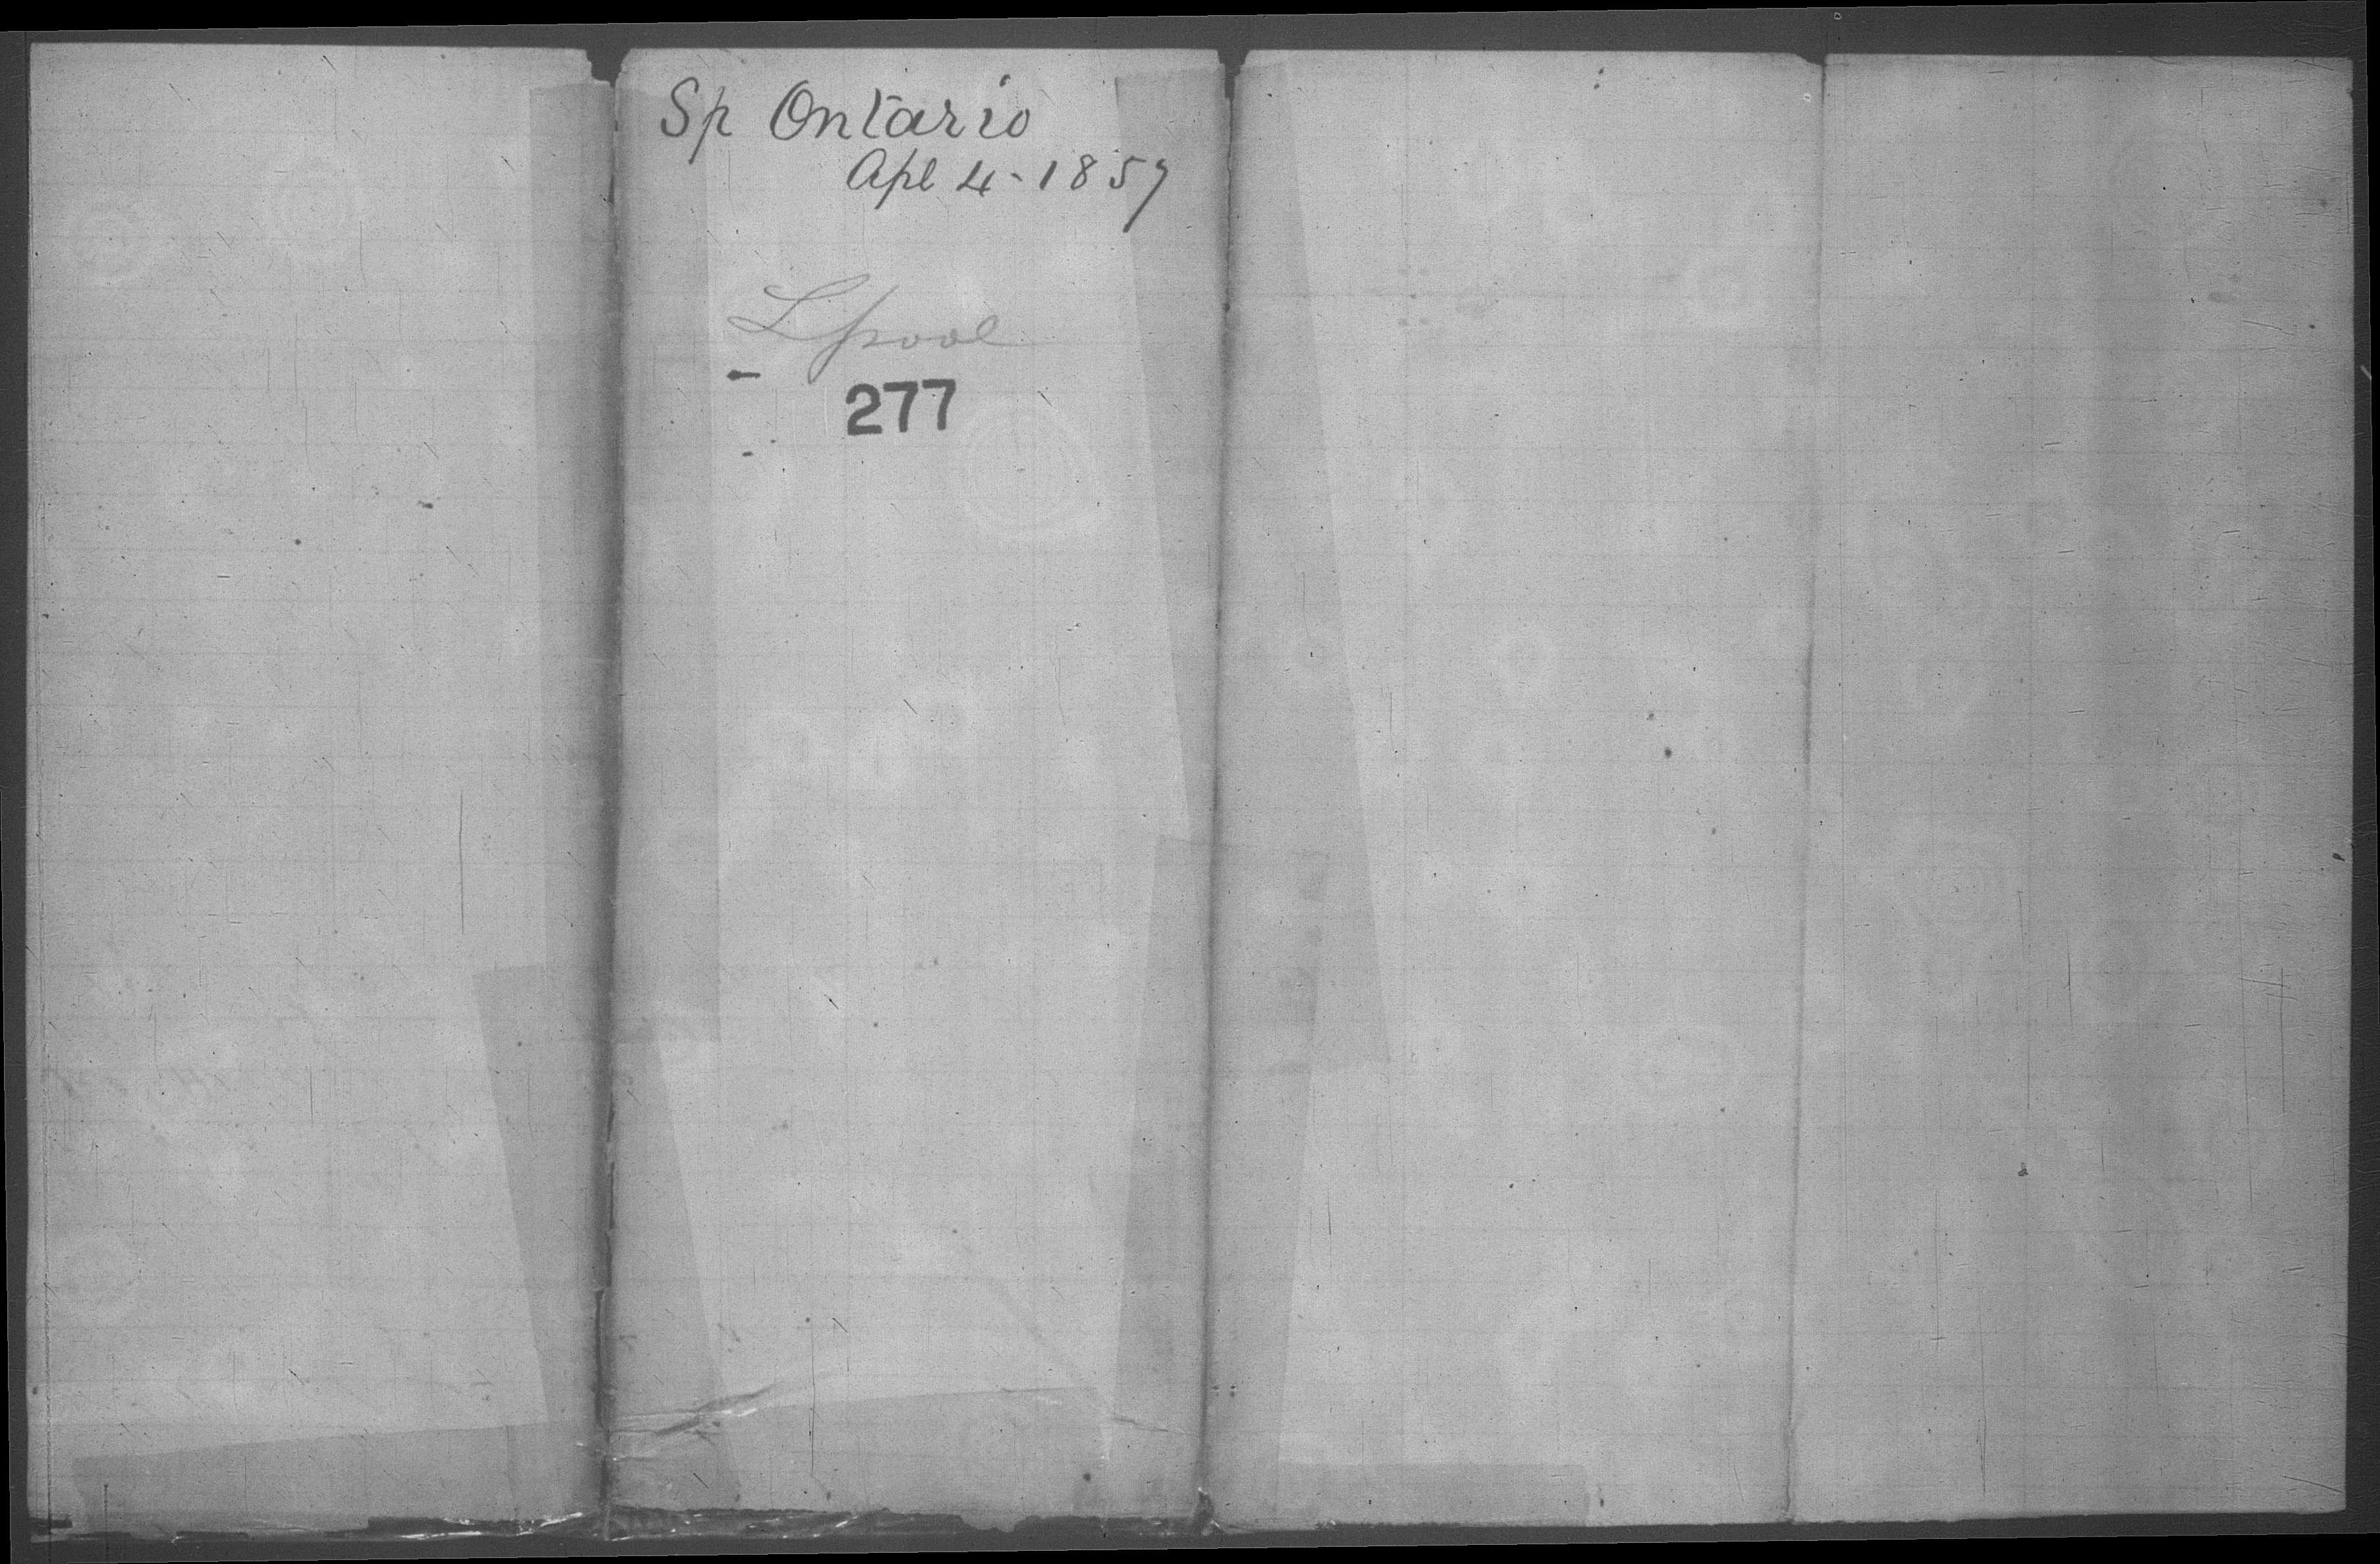 Sp Ontario
Apl 4-1857
Lpool
277